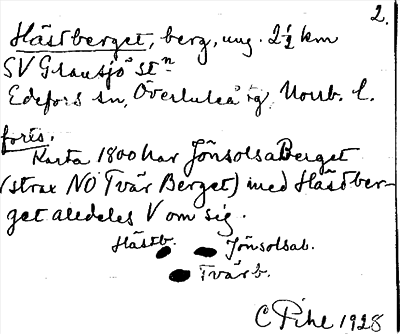 2.
Hästberget, berg, ung. 2½ km
SV Gransjö stn
Edefors sn, Överluleå tg, Norrb. l.
forts.
Karta 1800 har Jönsolsa Berget
(strax NO Tvär Berget) med Hästber-
get aldeles V om sig.
Hästb. Jönsolsab.
Tvärb.
C Pihl 1928